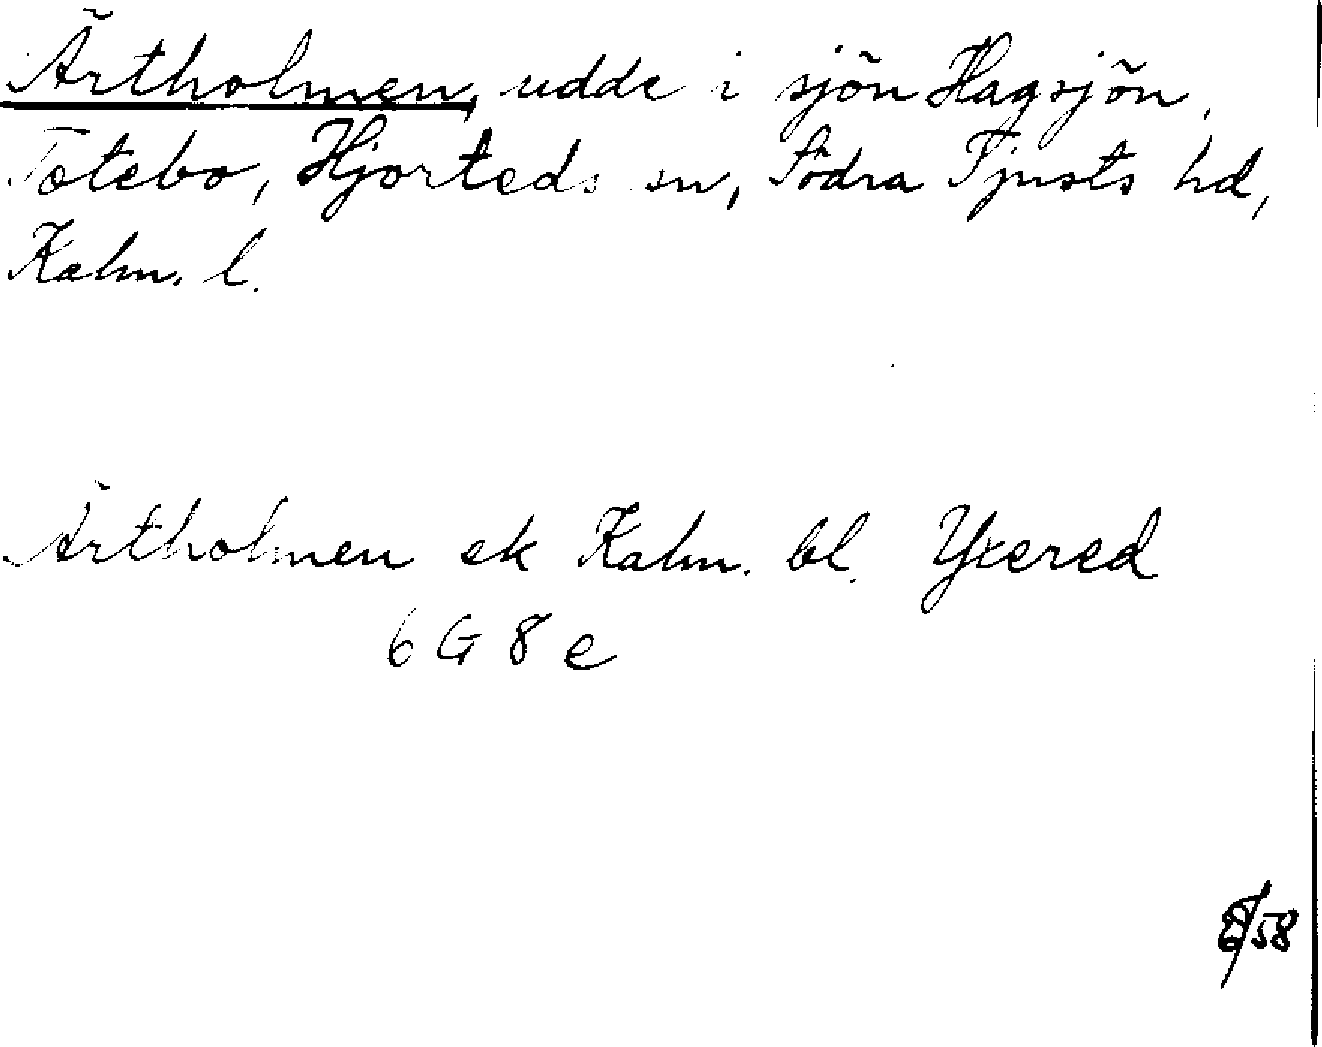 Ärtholmen, udde i sjön Hagsjön,
Totebo, Hjorteds sn, Södra Tjusts hd,
Kalm. l.
Ärtholmen ek Kalm. bl. Yxered
6 G 8 e